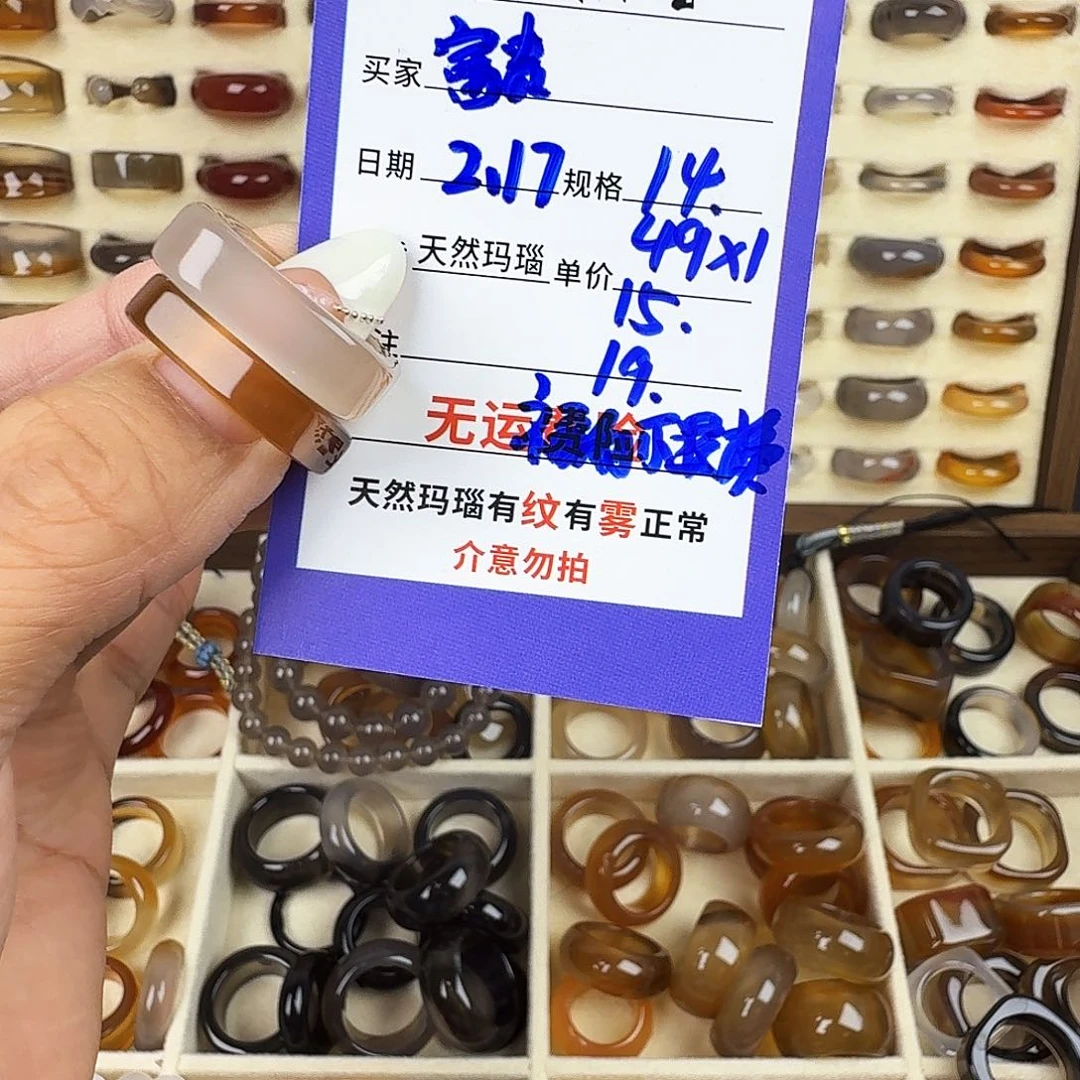 买家
日期 2.17 规格 14.
49×1
天然玛瑙 单价
15.
注
19.
无运费险
天然玛瑙有纹有雾正常
介意勿拍